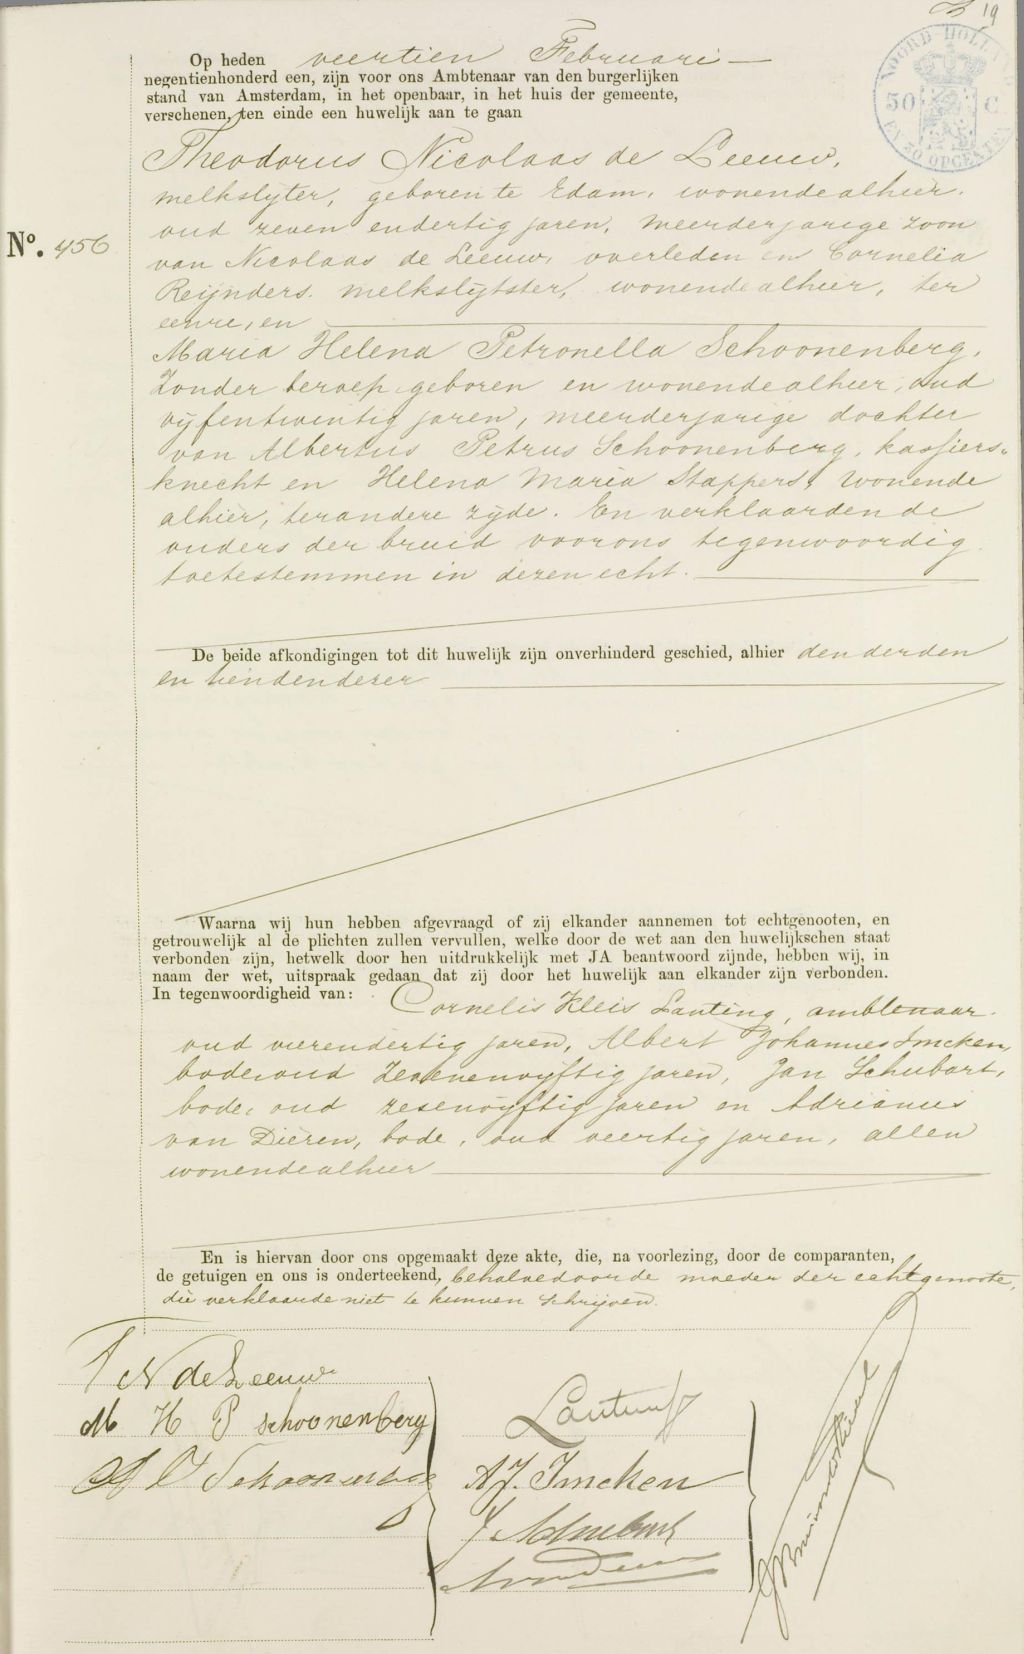 19
NOORD-HOLLAND
50 C
EN 30 OPCENTEN
Op heden veertien Februari —
negentienhonderd een, zijn voor ons Ambtenaar van den burgerlijken
stand van Amsterdam, in het openbaar, in het huis der gemeente,
verschenen, ten einde een huwelijk aan te gaan
Theodorus Nicolaas de Leeuw,
melkslyter, geboren te Edam, wonende alhier,
oud zeven endertig jaren, meerderjarige zoon
No. 456
van Nicolaas de Leeuw, overleden en Cornelia
Reijnders, melkslijtster, wonende alhier, ter
eenre, en
Maria Helena Petronella Schoonenberg,
Zonder beroep, geboren en wonende alhier, oud
vyfentwintig jaren, meerderjarige dochter
van Albertus Petrus Schoonenberg, kassiers-
knecht en Helena Maria Stappers, wonende
alhier, ter andere zyde. En verklaarden de
ouders der bruid voor ons tegenwoordig
toetestemmen in dezen echt.
De beide afkondigingen tot dit huwelijk zijn onverhinderd geschied, alhier den derden
en tienden dezer
Waarna wij hun hebben afgevraagd of zij elkander aannemen tot echtgenooten, en
getrouwelijk al de plichten zullen vervullen, welke door de wet aan den huwelijkschen staat
verbonden zijn, hetwelk door hen uitdrukkelijk met JA beantwoord zijnde, hebben wij, in
naam der wet, uitspraak gedaan dat zij door het huwelijk aan elkander zijn verbonden.
In tegenwoordigheid van: Cornelis Kleis Lanting, ambtenaar
oud vierendertig jaren, Albert Johannes Imcken,
bode, oud zevenenvyftig jaren, Jan Schubart,
bode, oud zesenvyftig jaren en Adrianus
van Dieren, bode, oud veertig jaren, allen
wonende alhier
En is hiervan door ons opgemaakt deze akte, die, na voorlezing, door de comparanten,
de getuigen en ons is onderteekend, behalve door de moeder der echtgenoote,
die verklaarde niet te kunnen schrijven.
T N de Leeuw
M H P Schoonenberg
A P Schoonenberg
Lanting
A. J. Imcken
J Schubart